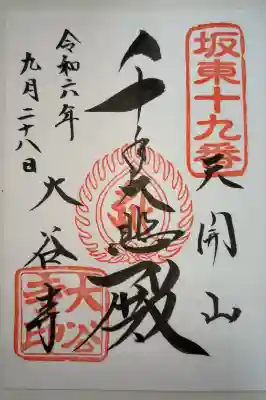 坂東十九番
天開山
千手大悲殿
大谷寺
令和六年
九月二十八日